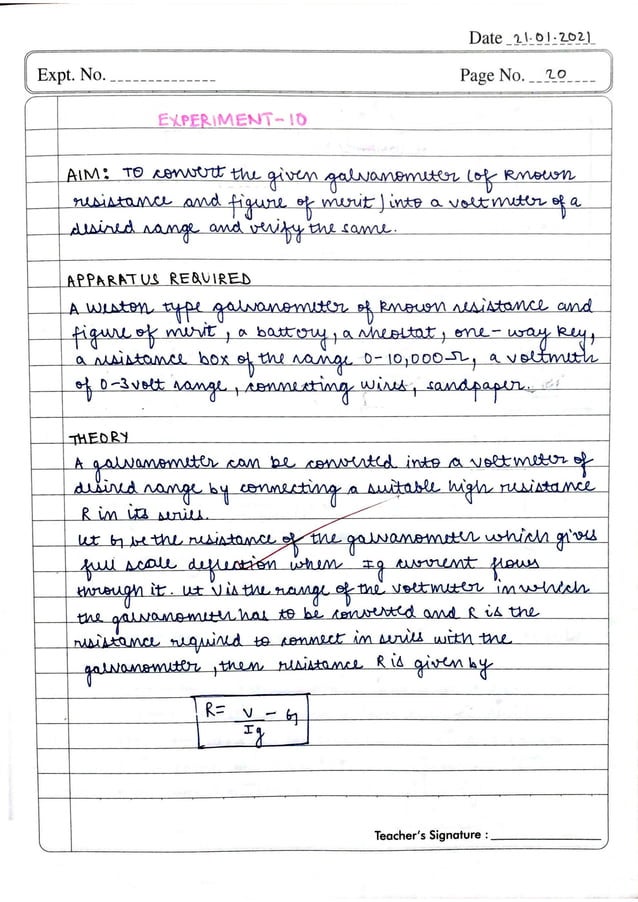 Date 21.01.2021
Expt. No.
Page No. 20
EXPERIMENT-10
AIM: To convert the given galvanometer (of known
resistance and figure of merit) into a voltmeter of a
desired range and verify the same.
APPARATUS REQUIRED
A weston type galvanometer of known resistance and
figure of merit, a battory, a rheostat, one-way key,
a resistance box of the range 0-10,000-Ω, a voltmeth
of 0-3volt range, connecting wires, sandpaper.
THEORY
A galvanometer can be converted into a voltmeter of
desired range by connecting a suitable high resistance
R in its series.
Let G be the resistance of the galvanometer which gives
full scale deflection when Ig current flows
through it. Let V is the range of the voltmeter in which
the galvanometer has to be converted and R is the
resistance required to connect in series with the
galvanometer, then resistance R is given by
R= V/Ig - G
Teacher's Signature :